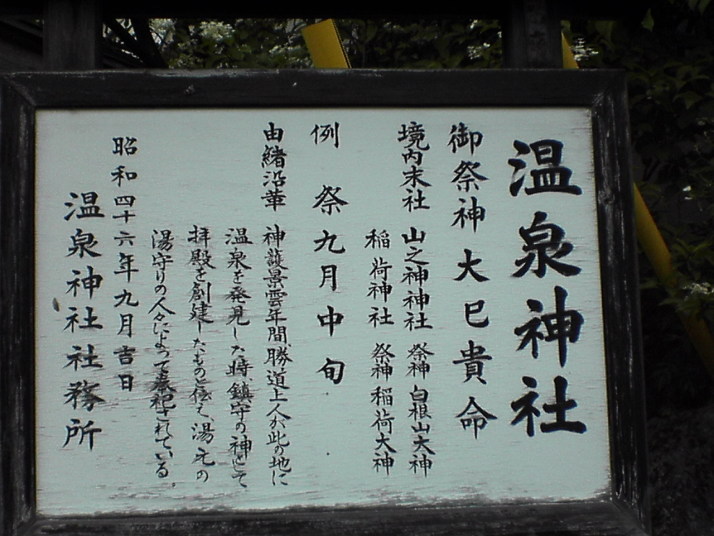 温泉神社
御祭神 大巳貴命
境内末社 山之神神社 祭神 白根山大神
稲荷神社 祭神 稲荷大神
例 祭 九月中旬
由緒沿革 神護景雲年間勝道上人が此の地に
温泉を発見した時鎮守の神として
拝殿を創建したものと伝え湯元の
湯守りの人々によって奉祀されている。
昭和四十六年九月吉日
温泉神社社務所